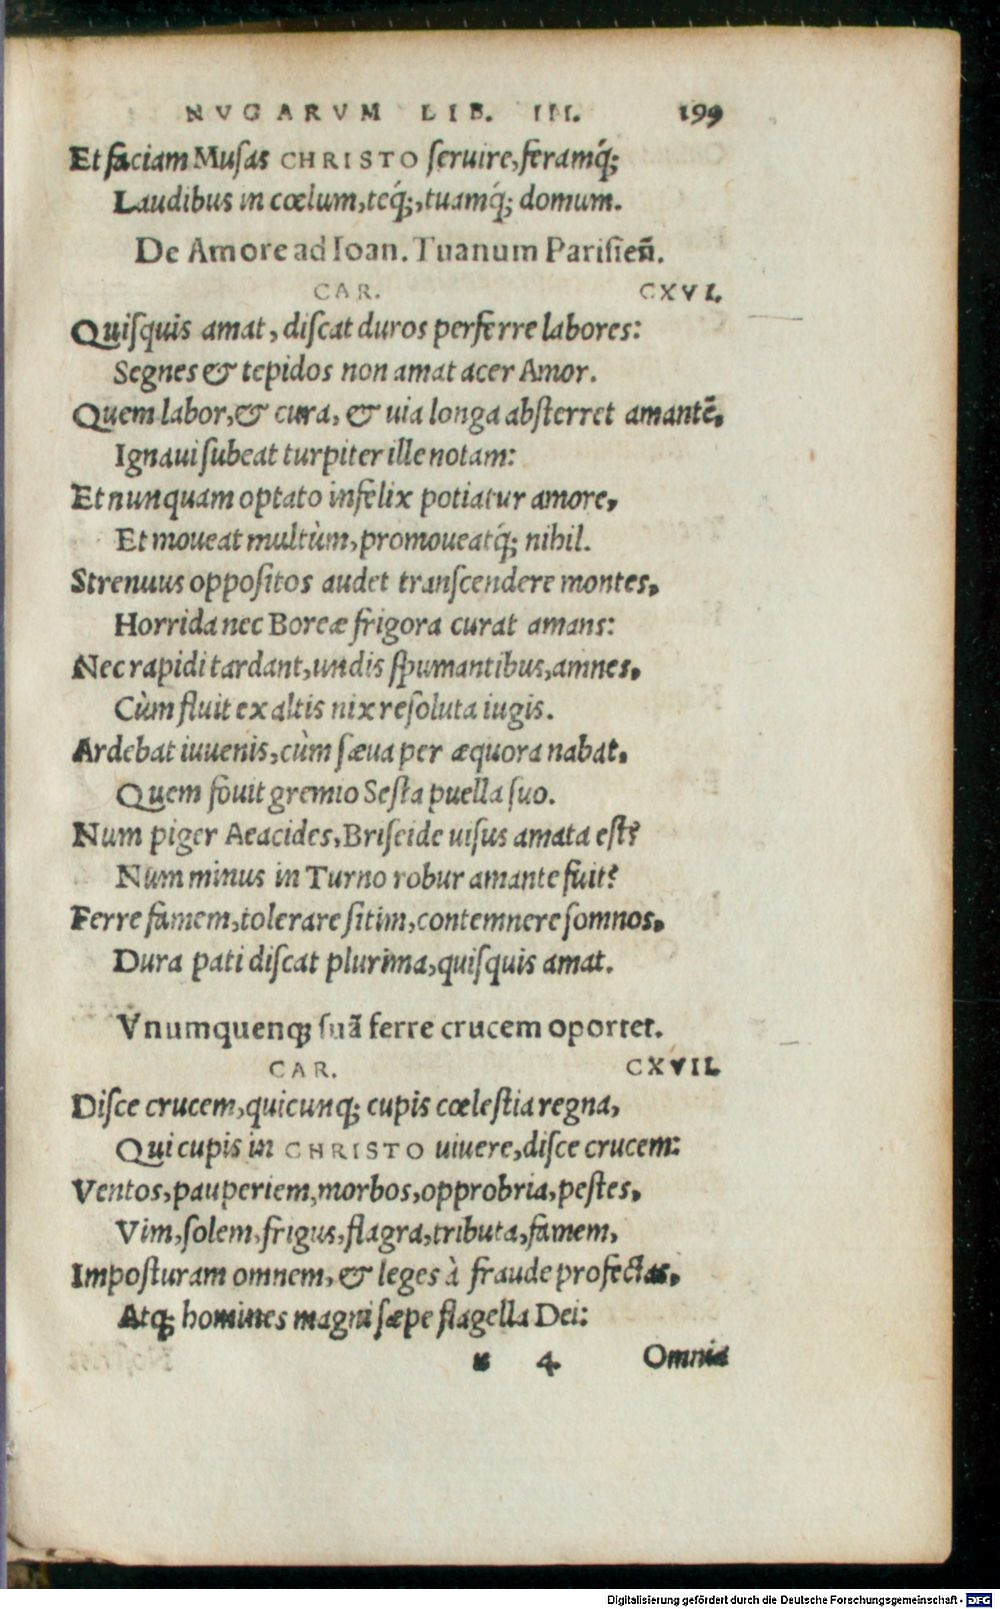 NVGARVM LIB. III. 199
Et faciam Musas CHRISTO seruire, feramq́;
Laudibus in cœlum, teq́;, tuamq́; domum.
De Amore ad Ioan. Tuanum Parisieñ.
CAR. CXVI.
Quisquis amat, discat duros perferre labores:
Segnes & tepidos non amat acer Amor.
Quem labor, & cura, & uia longa absterret amantē,
Ignaui subeat turpiter ille notam:
Et nunquam optato infelix potiatur amore,
Et moueat multùm, promoueatq́; nihil.
Strenuus oppositos audet transcendere montes,
Horrida nec Boreæ frigora curat amans:
Nec rapidi tardant, undis spumantibus, amnes,
Cùm fluit ex altis nix resoluta iugis.
Ardebat iuuenis, cùm sæua per æquora nabat,
Quem fouit gremio Sesta puella suo.
Num piger Aeacides, Briseide uisus amata est?
Num minus in Turno robur amante fuit?
Ferre famem, tolerare sitim, contemnere somnos,
Dura pati discat plurima, quisquis amat.
Vnumquenq; suā ferre crucem oportet.
CAR. CXVII.
Disce crucem, quicunq; cupis cœlestia regna,
Qui cupis in CHRISTO uiuere, disce crucem:
Ventos, pauperiem, morbos, opprobria, pestes,
Vim, solem, frigus, flagra, tributa, famem,
Imposturam omnem, & leges à fraude profectas,
Atq; homines magni sæpe flagella Dei:
4 Omnia
Digitalisierung gefördert durch die Deutsche Forschungsgemeinschaft - DFG